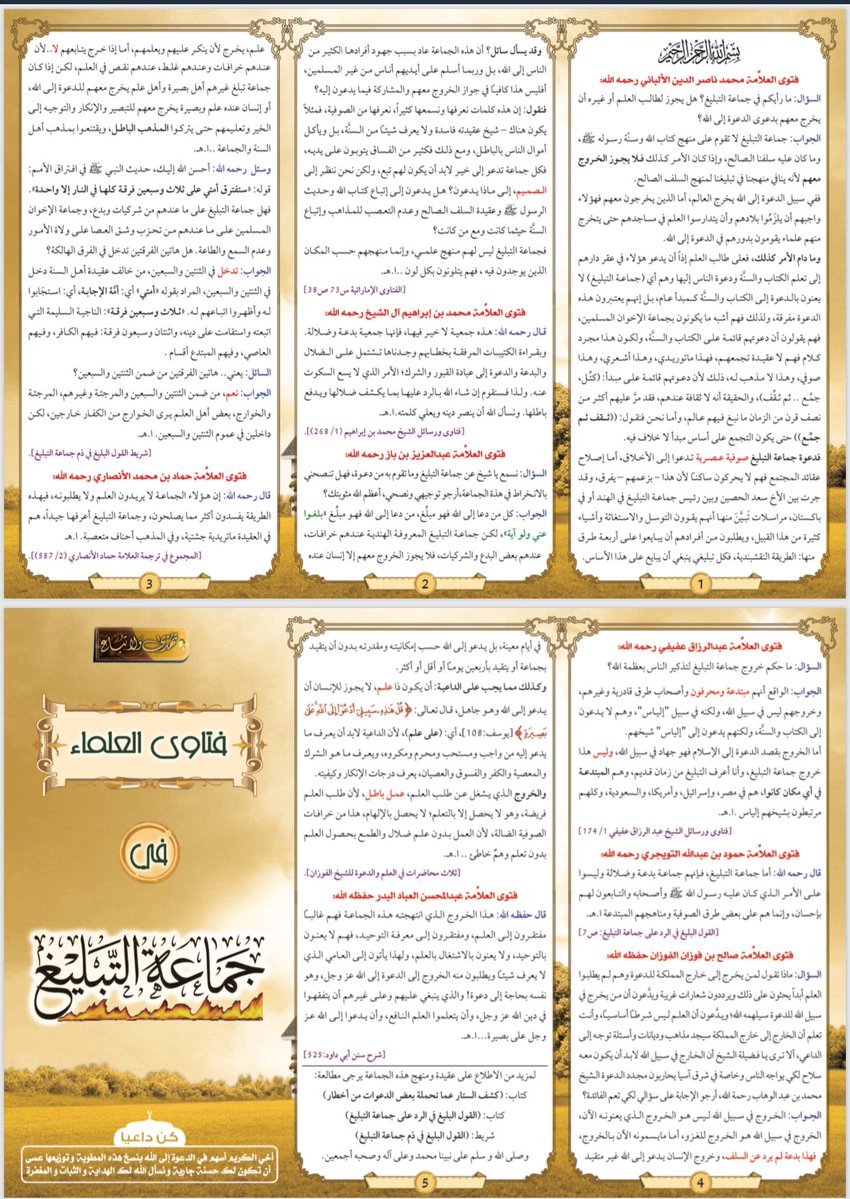 بسم الله الرحمن الرحيم
فتوى العلامة محمد ناصر الدين الألباني رحمه الله:
السؤال: ما رأيكم في جماعة التبليغ؟ هل يجوز لطالب العلم أو غيره أن
يخرج معهم بدعوى الدعوة إلى الله؟
الجواب: جماعة التبليغ لا تقوم على منهج كتاب الله وسنَّة رسوله ﷺ،
وما كان عليه سلفنا الصالح، وإذا كان الأمر كذلك فلا يجوز الخروج
معهم لأنه ينافي منهجنا في تبليغنا لمنهج السلف الصالح.
ففي سبيل الدعوة إلى الله يخرج العالم، أما الذين يخرجون معهم فهؤلاء
واجبهم أن يلزَمُوا بلادهم وأن يتدارسوا العلم في مساجدهم حتى يتخرج
منهم علماء يقومون بدورهم في الدعوة إلى الله.
وما دام الأمر كذلك، فعلى طالب العلم إذاً أن يدعو هؤلاء في عقر دارهم
إلى تعلم الكتاب والسنَّة ودعوة الناس إليها وهم أي (جماعة التبليغ) لا
يعنون بالدعوة إلى الكتاب والسنَّة كمبدأ عام، بل إنهم يعتبرون هذه
الدعوة مفرقة، ولذلك فهم أشبه ما يكونون بجماعة الإخوان المسلمين،
فهم يقولون أن دعوتهم قائمة على الكتاب والسنَّة، ولكون هذا مجرد
كلام فهم لا عقيدة تجمعهم، فهذا ماتوريدي، وهذا أشعري، وهذا
صوفي، وهذا لا مذهب له، ذلك لأن دعوتهم قائمة على مبدأ: (كتِّل،
جمِّع .. ثم ثقِّف)، والحقيقة أنه لا ثقافة عندهم، فقد مرَّ عليهم أكثر من
نصف قرن من الزمان ما نبغ فيهم عالم، وأما نحن فنقول: ((ثقف ثم
جمِّع)) حتى يكون التجمع على أساس مبدأ لا خلاف فيه.
فدعوة جماعة التبليغ صوفية عصرية تدعوا إلى الأخلاق، أما إصلاح
عقائد المجتمع فهم لا يحركون ساكنًا لأن هذا - بزعمهم - يفرق، وقد
جرت بين الأخ سعد الحصين وبين رئيس جماعة التبليغ في الهند أو في
باكستان، مراسلات تَبيَّنَ منها أنهم يقرون التوسل والاستغاثة وأشياء
كثيرة من هذا القبيل، ويطلبون من أفرادهم أن يبايعوا على أربعة طرق
منها: الطريقة النقشبندية، فكل تبليغي ينبغي أن يبايع على هذا الأساس.
1
وقد يسأل سائل؟ أن هذه الجماعة عاد بسبب جهود أفرادها الكثير من
الناس إلى الله، بل وربما أسلم على أيديهم أناس من غير المسلمين،
أفليس هذا كافياً في جواز الخروج معهم والمشاركة فيما يدعون إليه؟
فنقول: إن هذه كلمات نعرفها ونسمعها كثيراً، نعرفها من الصوفية، فمثلاً
يكون هناك - شيخ عقيدته فاسدة ولا يعرف شيئًا من السنَّة، بل ويأكل
أموال الناس بالباطل، ومع ذلك فكثير من الفساق يتوبون على يديه،
فكل جماعة تدعو إلى خير لابد أن يكون لهم تبع، ولكن نحن ننظر إلى
الصميم، إلى ماذا يدعون؟ هل يدعون إلى إتباع كتاب الله وحديث
الرسول ﷺ وعقيدة السلف الصالح وعدم التعصب للمذاهب وإتباع
السنَّة حيثما كانت ومع من كانت؟
فجماعة التبليغ ليس لهم منهج علمي، وإنما منهجهم حسب المكان
الذين يوجدون فيه، فهم يتلونون بكل لون ..ا.هـ.
[الفتاوى الإماراتية س73 ص38]
فتوى العلامة محمد بن إبراهيم آل الشيخ رحمه الله:
قال رحمه الله: هذه جمعية لا خير فيها، فإنها جمعية بدعة وضلالة.
وبقراءة الكتيبات المرفقة بخطابهم وجدناها تشتمل على الضلال
والبدعة والدعوة إلى عبادة القبور والشرك؛ الأمر الذي لا يسع السكوت
عنه. ولذا فسنقوم إن شاء الله بالرد عليها بما يكشف ضلالها ويدفع
باطلها. ونسأل الله أن ينصر دينه ويعلي كلمته.ا.هـ.
[فتاوى ورسائل الشيخ محمد بن إبراهيم (1/ 268)].
فتوى العلامة عبدالعزيز بن باز رحمه الله:
السؤال: نسمع يا شيخ عن جماعة التبليغ وما تقوم به من دعوة، فهل تنصحني
بالانخراط في هذه الجماعة،أرجو توجيهي ونصحي، أعظم الله مثوبتك؟
الجواب: كل من دعا إلى الله فهو مبلَّغ، من دعا إلى الله فهو مبلَّغ «بلغوا
عني ولو آية»، لكن جماعة التبليغ المعروفة الهندية عندهم خرافات،
عندهم بعض البدع والشركيات، فلا يجوز الخروج معهم إلا إنسان عنده
2
علم، يخرج لأن ينكر عليهم ويعلمهم، أما إذا خرج يتابعهم لا..لأن
عندهم خرافات وعندهم غلط، عندهم نقص في العلم، لكن إذا كان
جماعة تبلغ غيرهم أهل بصيرة وأهل علم يخرج معهم للدعوة إلى الله،
أو إنسان عنده علم وبصيرة يخرج معهم للتبصير والإنكار والتوجيه إلى
الخير وتعليمهم حتى يتركوا المذهب الباطل، ويقتنعوا بمذهب أهل
السنة والجماعة ..ا.هـ.
وسئل رحمه الله: أحسن الله إليك، حديث النبي ﷺ في افتراق الأمم:
قوله: «ستفترق أمتي على ثلاث وسبعين فرقة كلها في النار إلا واحدة».
فهل جماعة التبليغ على ما عندهم من شركيات وبدع، وجماعة الإخوان
المسلمين على ما عندهم من تحزب وشق العصا على ولاة الأمور
وعدم السمع والطاعة. هل هاتين الفرقتين تدخل في الفرق الهالكة؟
الجواب: تدخل في الثنتين والسبعين، من خالف عقيدة أهل السنة دخل
في الثنتين والسبعين، المراد بقوله «أمتي» أي: أمَّة الإجابة، أي: استجَابوا
له وأظهروا اتباعهم له. «ثلاث وسبعين فرقة»: الناجية السليمة التي
اتبعته واستقامت على دينه، واثنتان وسبعون فرقة: فيهم الكافر، وفيهم
العاصي، وفيهم المبتدع أقسام .
السائل: يعني.. هاتين الفرقتين من ضمن الثنتين والسبعين؟
الجواب: نعم، من ضمن الثنتين والسبعين والمرجئة وغيرهم، المرجئة
والخوارج، بعض أهل العلم يرى الخوارج من الكفار خارجين، لكن
داخلين في عموم الثنتين والسبعين. ا.هـ.
[شريط القول البليغ في ذم جماعة التبليغ].
فتوى العلامة حماد بن محمد الأنصاري رحمه الله:
قال رحمه الله: إن هؤلاء الجماعة لا يريدون العلم ولا يطلبونه، فهذه
الطريقة يفسدون أكثر مما يصلحون، وجماعة التبليغ أعرفها جيداً، هم
في العقيدة ماتريدية جشتية، وفي المذهب أحناف متعصبة. ا.هـ.
[المجموع في ترجمة العلامة حماد الأنصاري (2/ 587)].
3
فتوى العلامة عبدالرزاق عفيفي رحمه الله:
السؤال: ما حكم خروج جماعة التبليغ لتذكير الناس بعظمة الله؟
الجواب: الواقع أنهم مبتدعة ومحرفون وأصحاب طرق قادرية وغيرهم،
وخروجهم ليس في سبيل الله، ولكنه في سبيل "إلياس"، وهم لا يدعون
إلى الكتاب والسنَّة، ولكنهم يدعون إلى "إلياس" شيخهم.
أما الخروج بقصد الدعوة إلى الإسلام فهو جهاد في سبيل الله، وليس هذا
خروج جماعة التبليغ، وأنا أعرف التبليغ من زمان قديم، وهم المبتدعة
في أي مكان كانوا، هم في مصر، وإسرائيل، وأمريكا، والسعودية، وكلهم
مرتبطون بشيخهم إلياس .ا.هـ.
[فتاوى ورسائل الشيخ عبد الرزاق عفيفي 1/ 174]
فتوى العلامة حمود بن عبدالله التويجري رحمه الله:
قال رحمه الله: أما جماعة التبليغ، فإنهم جماعة بدعة وضلالة وليسوا
على الأمر الذي كان عليه رسول الله ﷺ وأصحابه والتابعون لهم
بإحسان، وإنما هم على بعض طرق الصوفية ومناهجهم المبتدعة ا.هـ.
[القول البليغ في الرد على جماعة التبليغ: ص7]
فتوى العلامة صالح بن فوزان الفوزان حفظه الله:
السؤال: ماذا تقول لمن يخرج إلى خارج المملكة للدعوة وهم لم يطلبوا
العلم أبداً يحثون على ذلك ويرددون شعارات غريبة ويدَّعون أن من يخرج في
سبيل الله للدعوة سيلهمه الله؛ ويدَّعون أن العلم ليس شرطًا أساسيًا، وأنت
تعلم أن الخارج إلى خارج المملكة سيجد مذاهب وديانات وأسئلة توجه إلى
الداعي، ألا ترى يا فضيلة الشيخ أن الخارج في سبيل الله لابد أن يكون معه
سلاح لكي يواجه الناس وخاصة في شرق آسيا يحاربون مجدد الدعوة الشيخ
محمد بن عبد الوهاب رحمة الله، أرجو الإجابة على سؤالي لكي تعم الفائدة؟
الجواب: الخروج في سبيل الله ليس هو الخروج الذي يعنونه الآن،
الخروج في سبيل الله هو الخروج للغزو، أما مايسمونه الآن بالخروج،
فهذا بدعة لم يرد عن السلف، وخروج الإنسان يدعو إلى الله غير متقيد
4
في أيام معينة، بل يدعو إلى الله حسب إمكانيته ومقدرته بدون أن يتقيد
بجماعة أو يتقيد بأربعين يومًا أو أقل أو أكثر.
وكذلك مما يجب على الداعية: أن يكون ذا علم، لا يجوز للإنسان أن
يدعو إلى الله وهو جاهل، قال تعالى: ﴿قُلْ هَذِهِ سَبِيلِي أَدْعُو إِلَى اللَّهِ عَلَى
بَصِيرَةٍ﴾ [يوسف:108]، أي: (على علم)، لأن الداعية لابد أن يعرف ما
يدعو إليه من واجب ومستحب ومحرم ومكروه، ويعرف ما هو الشرك
والمعصية والكفر والفسوق والعصيان، يعرف درجات الإنكار وكيفيته.
والخروج الذي يشغل عن طلب العلم، عمل باطل، لأن طلب العلم
فريضة، وهو لا يحصل إلا بالتعلم؛ لا يحصل بالإلهام، هذا من خرافات
الصوفية الضالة، لأن العمل بدون علم ضلال والطمع بحصول العلم
بدون تعلم وهمٌ خاطئ .. ا.هـ.
[ثلاث محاضرات في العلم والدعوة للشيخ الفوزان].
فتوى العلامة عبدالمحسن العباد البدر حفظه الله:
قال حفظه الله: هذا الخروج الذي انتهجته هذه الجماعة فهم غالبًا
مفتقرون إلى العلم، ومفتقرون إلى معرفة التوحيد، فهم لا يعنون
بالتوحيد، ولا يعنون بالاشتغال بالعلم، ولهذا يأتون إلى العامي الذي
لا يعرف شيئًا ويطلبون منه الخروج إلى الدعوة إلى الله عز وجل، وهو
نفسه بحاجة إلى دعوة! والذي ينبغي عليهم وعلى غيرهم أن يتفقهوا
في دين الله عز وجل، وأن يتعلموا العلم النافع، وأن يدعوا إلى الله عز
وجل على بصيرة...ا.هـ.
[شرح سنن أبي داود:525]
لمزيد من الاطلاع على عقيدة ومنهج هذه الجماعة يرجى مطالعة:
كتاب: (كشف الستار عما تحمله بعض الدعوات من أخطار)
كتاب: (القول البليغ في الرد على جماعة التبليغ)
شريط: (القول البليغ في ذم جماعة التبليغ)
وصلى الله وسلم على نبينا محمد وعلى آله وصحبه أجمعين.
5
فتاوى العلماء
في
جماعة التبليغ
كن داعيا
أخي الكريم أسهم في الدعوة إلى الله بنسخ هذه المطوية وتوزيعها عسى
أن تكون لك حسنة جارية ونسأل الله لك الهداية والثبات و المغفرة